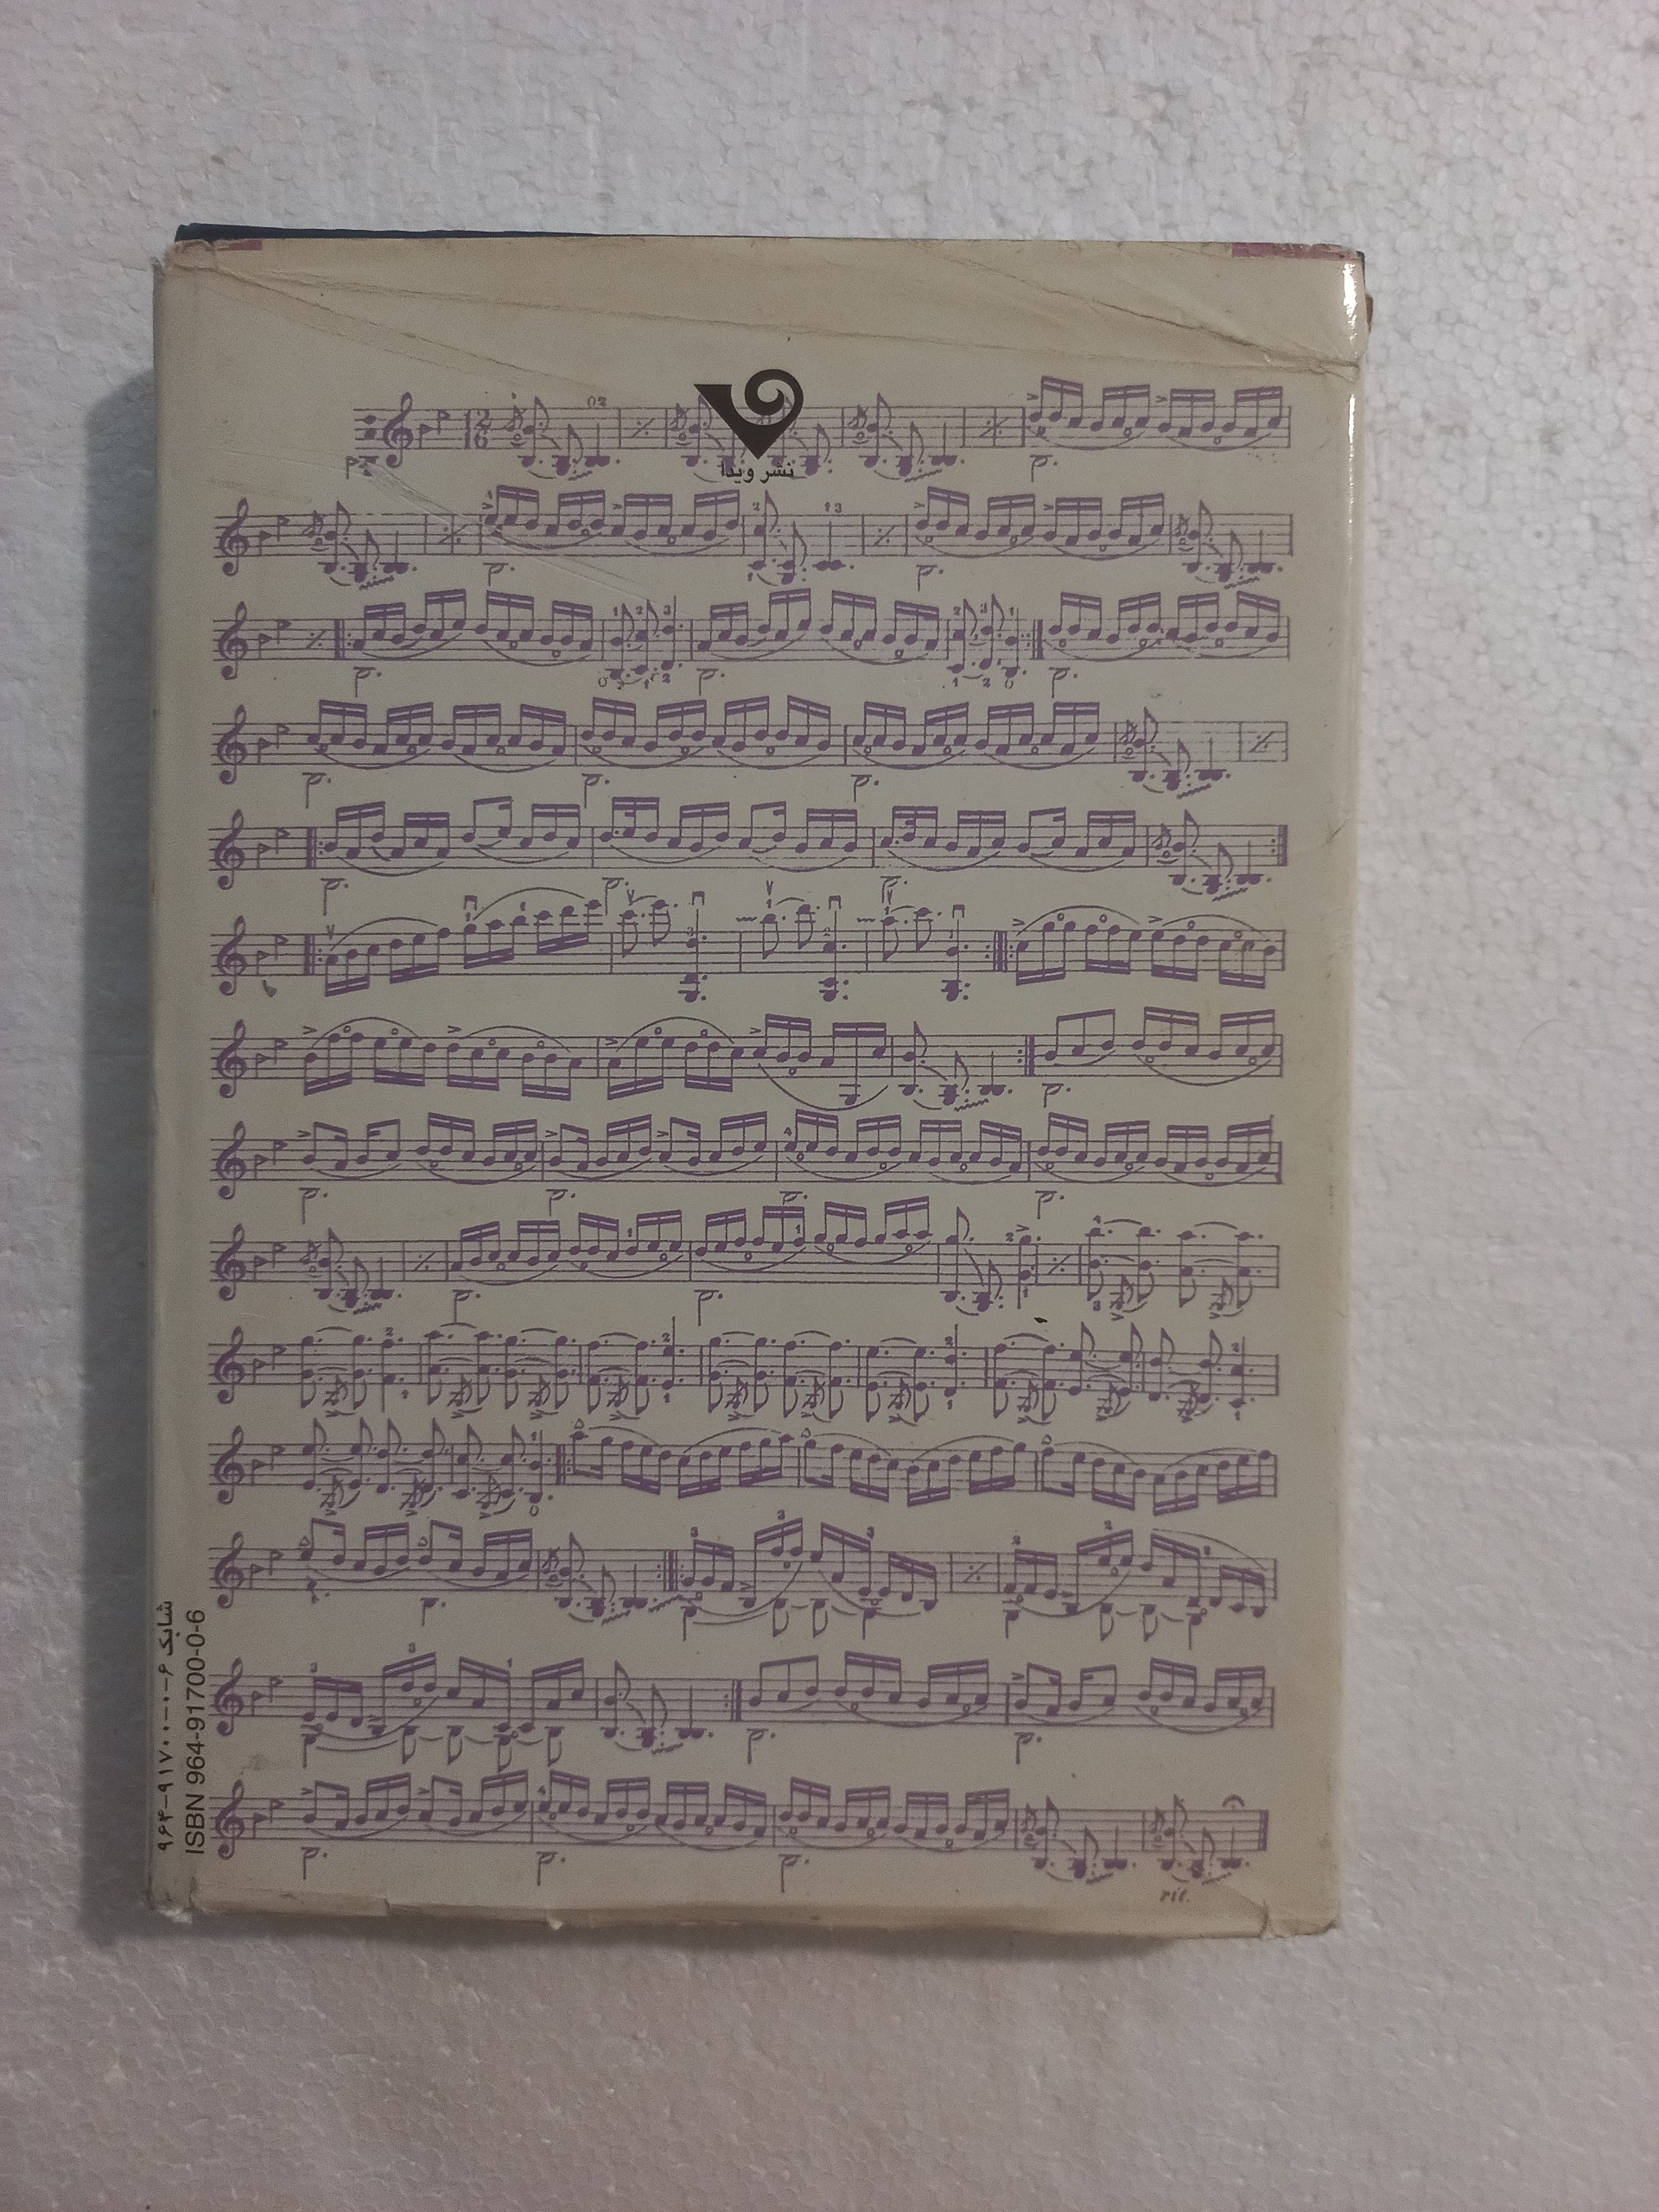 نشر ویدا
شابک ۶-۰-۹۱۷۰۰-۹۶۴
ISBN 964-91700-0-6
rit.